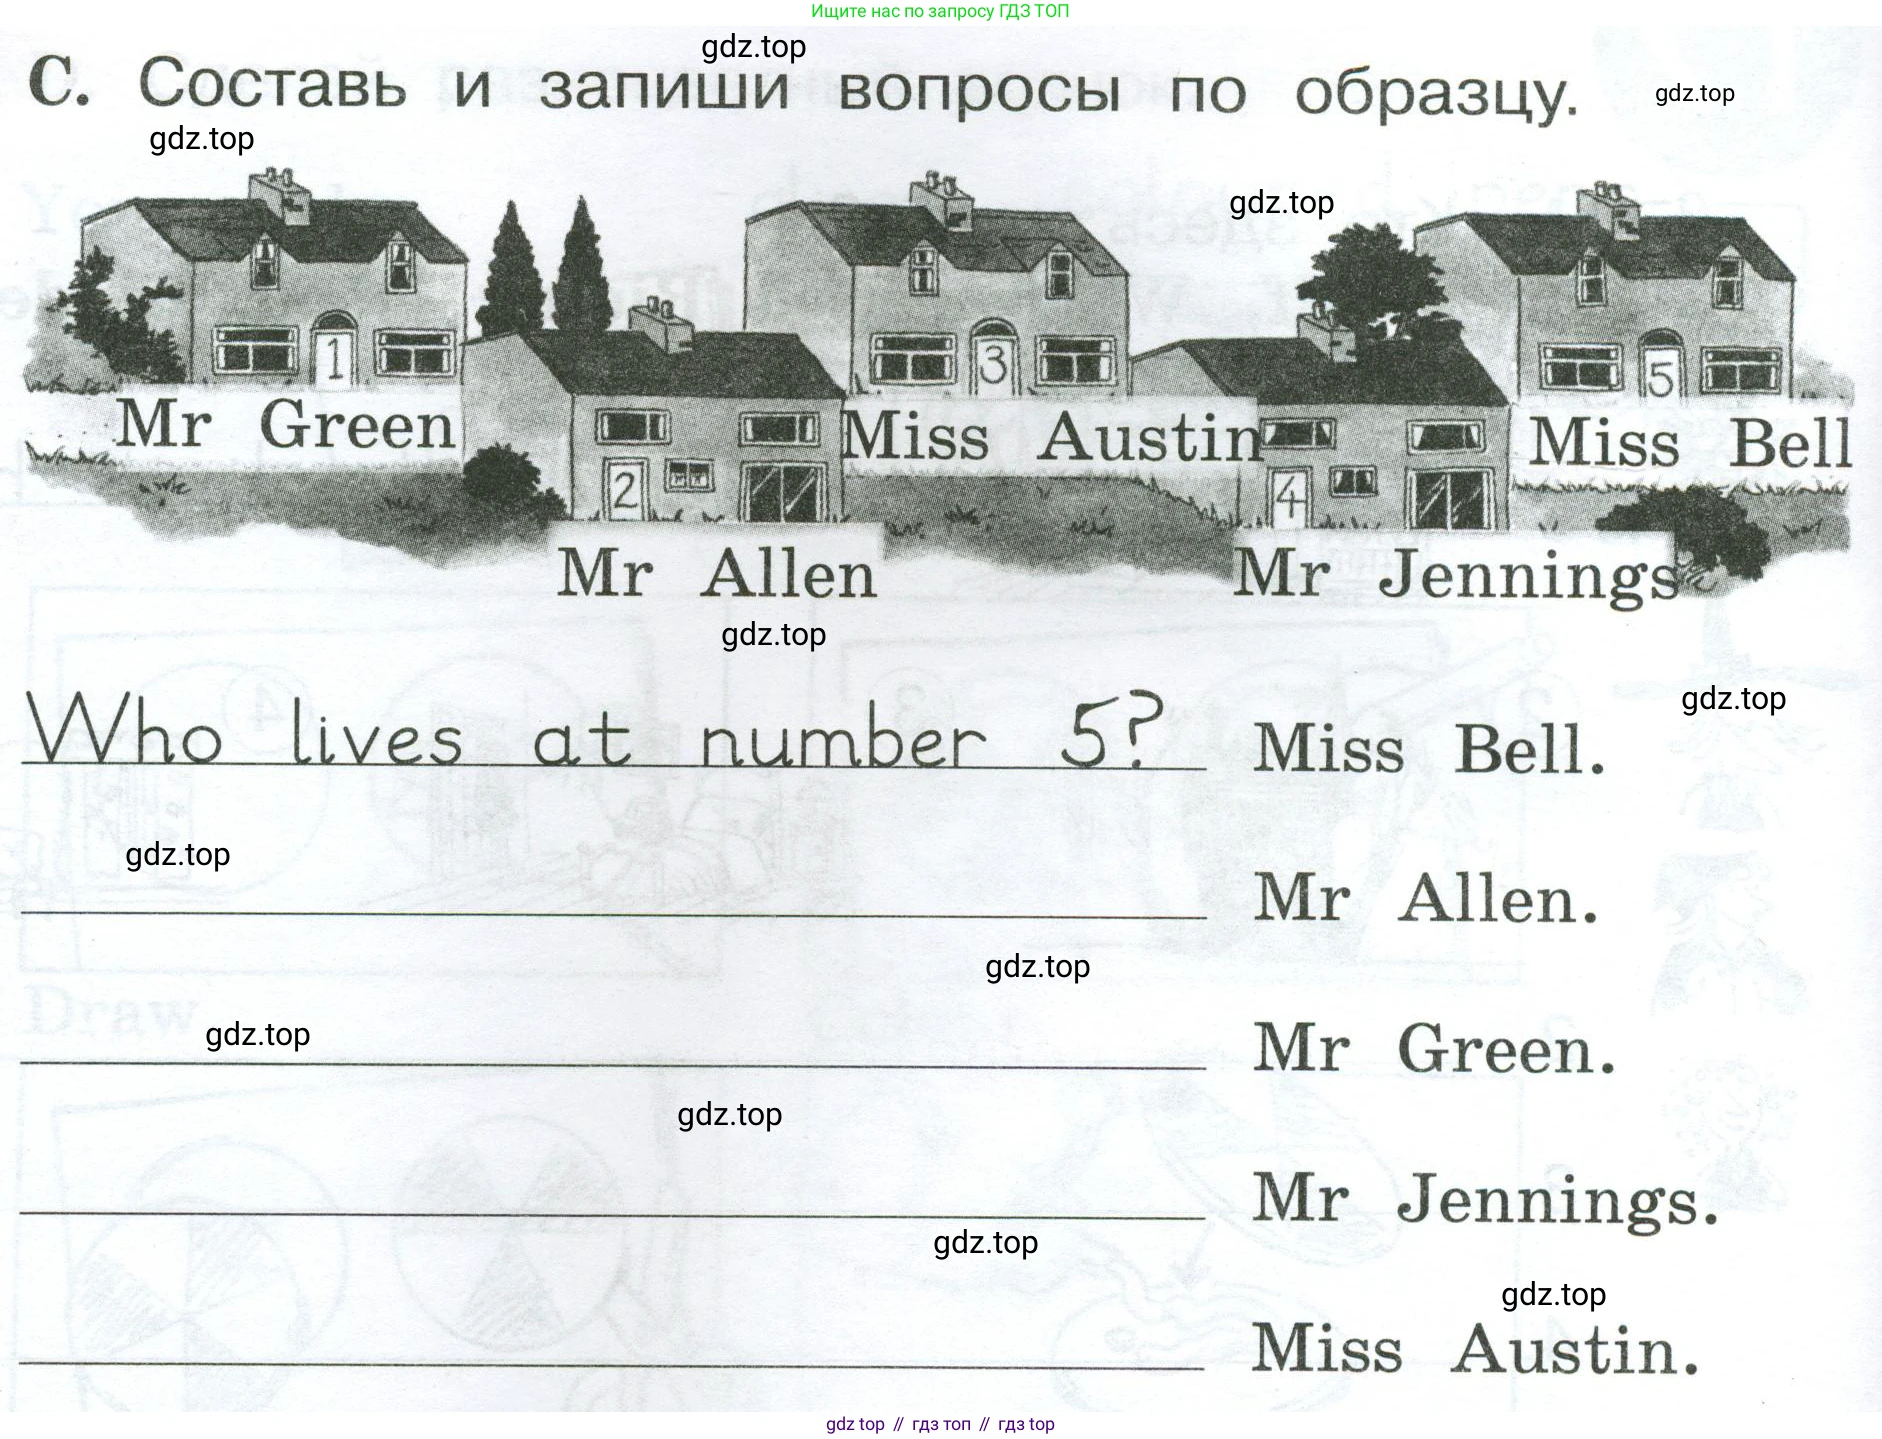 Ищите нас по запросу ГДЗ ТОП
gdz.top
C. Составь и запиши вопросы по образцу.
gdz.top
gdz.top
gdz.top
1
3
5
Mr Green
Miss Austin
Miss Bell
2
4
Mr Allen
Mr Jennings
gdz.top
gdz.top
Who lives at number 5? Miss Bell.
gdz.top
Mr Allen.
gdz.top
gdz.top
Mr Green.
gdz.top
Mr Jennings.
gdz.top
gdz.top
Miss Austin.
gdz top // гдз топ // гдз top